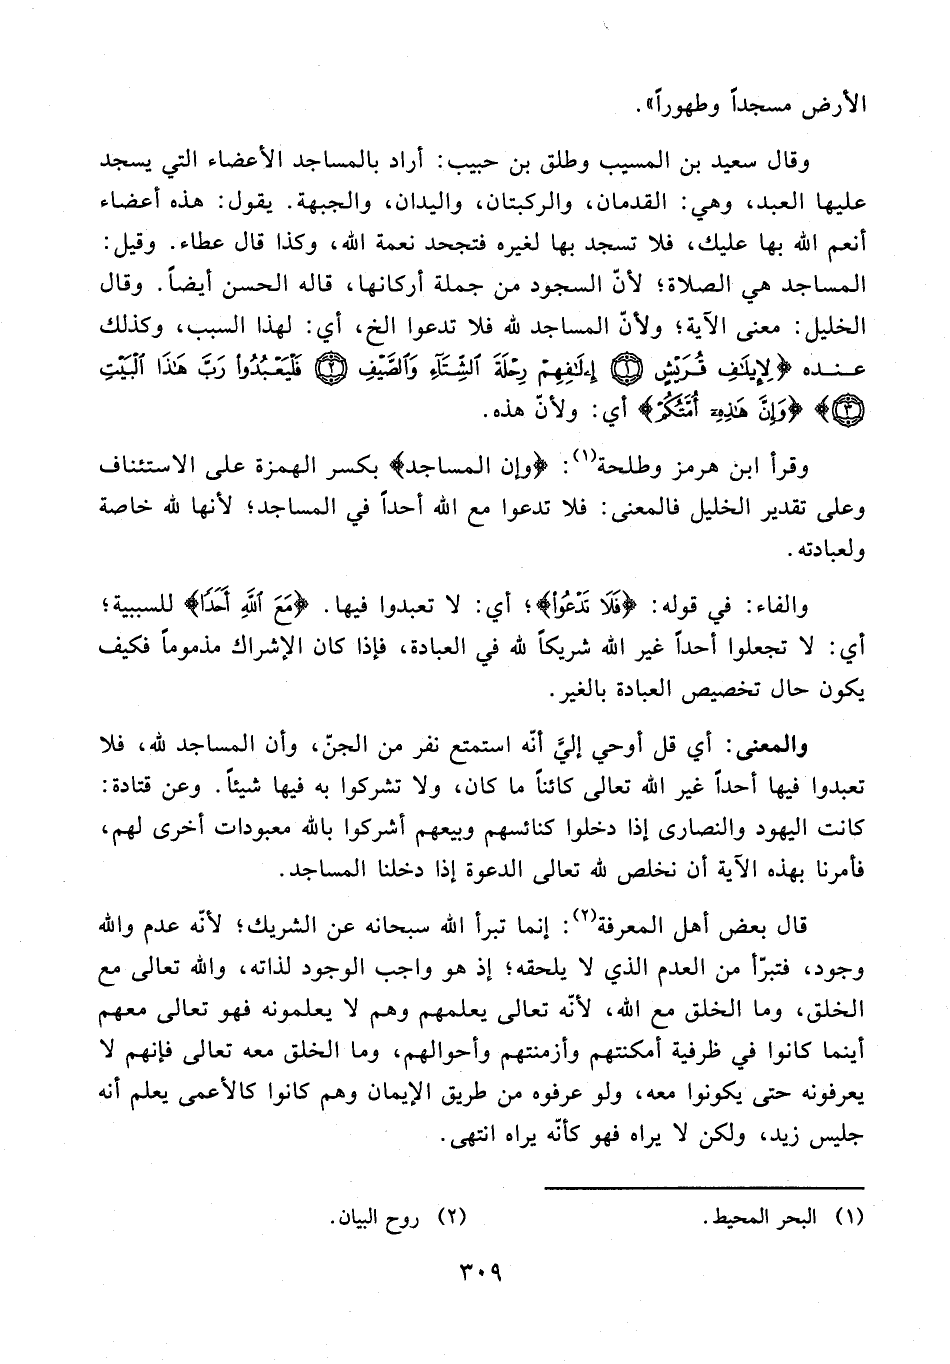 الأرض مسجداً وطهوراً».
وقال سعيد بن المسيب وطلق بن حبيب: أراد بالمساجد الأعضاء التي يسجد
عليها العبد، وهي: القدمان، والركبتان، واليدان، والجبهة. يقول: هذه أعضاء
أنعم الله بها عليك، فلا تسجد بها لغيره فتجحد نعمة الله، وكذا قال عطاء. وقيل:
المساجد هي الصلاة؛ لأنّ السجود من جملة أركانها، قاله الحسن أيضاً. وقال
الخليل: معنى الآية؛ ولأنّ المساجد لله فلا تدعوا الخ، أي: لهذا السبب، وكذلك
عنده ﴿لِإِيلَٰفِ قُرَيْشٍ ۝١ إِۦلَٰفِهِمْ رِحْلَةَ ٱلشِّتَآءِ وَٱلصَّيْفِ ۝٢ فَلْيَعْبُدُوا۟ رَبَّ هَٰذَا ٱلْبَيْتِ
۝٣﴾ ﴿وَإِنَّ هَٰذِهِۦٓ أُمَّتُكُمْ﴾ أي: ولأنّ هذه.
وقرأ ابن هرمز وطلحة(١): ﴿وإن المساجد﴾ بكسر الهمزة على الاستئناف
وعلى تقدير الخليل فالمعنى: فلا تدعوا مع الله أحداً في المساجد؛ لأنها لله خاصة
ولعبادته.
والفاء: في قوله: ﴿فَلَا تَدْعُوا۟﴾؛ أي: لا تعبدوا فيها. ﴿مَعَ ٱللَّهِ أَحَدًا﴾ للسببية؛
أي: لا تجعلوا أحداً غير الله شريكاً لله في العبادة، فإذا كان الإشراك مذموماً فكيف
يكون حال تخصيص العبادة بالغير.
والمعنى: أي قل أوحي إليَّ أنّه استمتع نفر من الجنّ، وأن المساجد لله، فلا
تعبدوا فيها أحداً غير الله تعالى كائناً ما كان، ولا تشركوا به فيها شيئاً. وعن قتادة:
كانت اليهود والنصارى إذا دخلوا كنائسهم وبيعهم أشركوا بالله معبودات أخرى لهم،
فأمرنا بهذه الآية أن نخلص لله تعالى الدعوة إذا دخلنا المساجد.
قال بعض أهل المعرفة(٢): إنما تبرأ الله سبحانه عن الشريك؛ لأنّه عدم والله
وجود، فتبرّأ من العدم الذي لا يلحقه؛ إذ هو واجب الوجود لذاته، والله تعالى مع
الخلق، وما الخلق مع الله، لأنّه تعالى يعلمهم وهم لا يعلمونه فهو تعالى معهم
أينما كانوا في ظرفية أمكنتهم وأزمنتهم وأحوالهم، وما الخلق معه تعالى فإنهم لا
يعرفونه حتى يكونوا معه، ولو عرفوه من طريق الإيمان وهم كانوا كالأعمى يعلم أنه
جليس زيد، ولكن لا يراه فهو كأنّه يراه انتهى.
(١) البحر المحيط. (٢) روح البيان.
٣٠٩